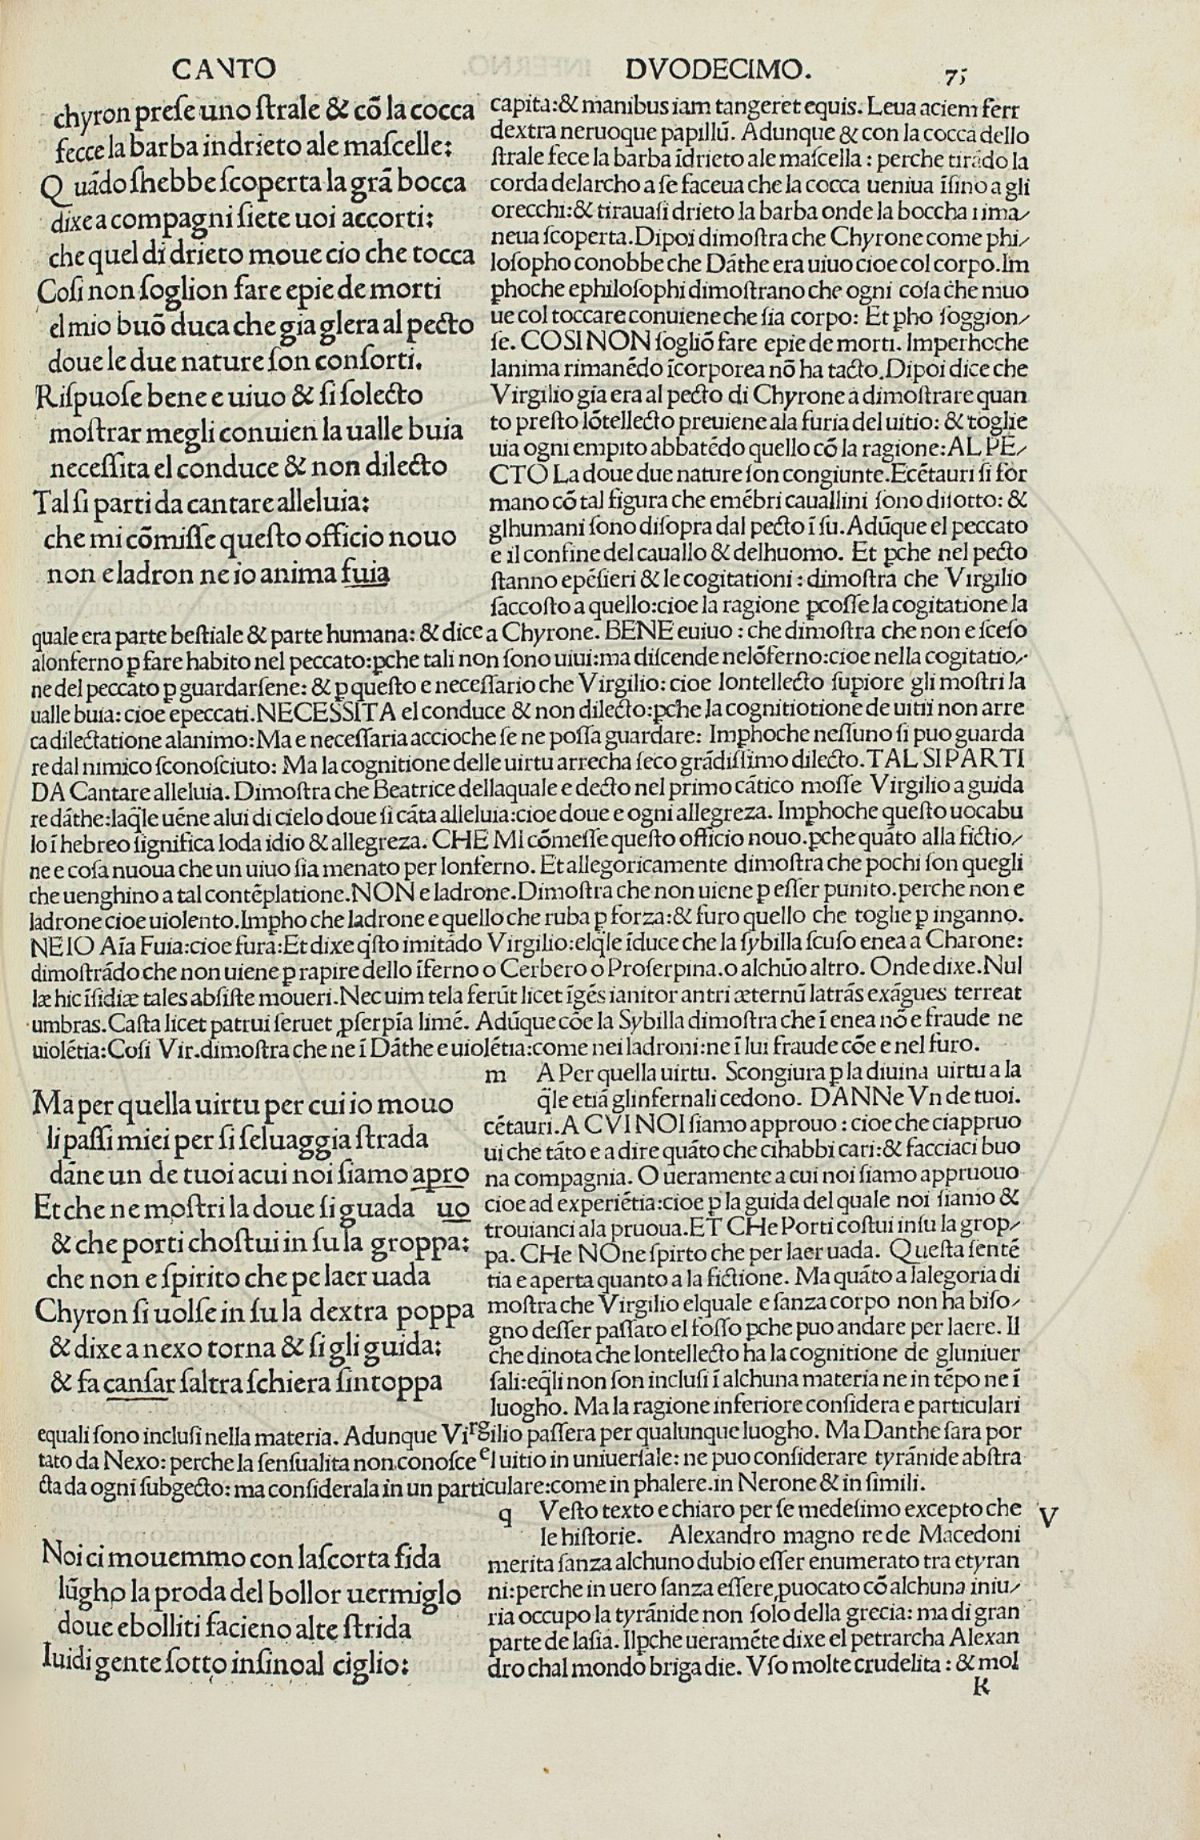 CANTO DVODECIMO. 75
chyron preſe uno ſtrale & cõ la cocca
fecce la barba indrieto ale maſcelle:
Q uãdo ſhebbe ſcoperta la grã bocca
dixe a compagni ſiete uoi accorti:
che quel di drieto moue cio che tocca
Coſi non ſoglion fare epie de morti
el mio buõ duca che gia glera al pecto
doue le due nature ſon conſorti.
Riſpuoſe bene e uiuo & ſi ſolecto
moſtrar megli conuien la ualle buia
neceſſita el conduce & non dilecto
Tal ſi parti da cantare alleluia:
che mi cõmiſſe queſto officio nouo
non e ladron ne io anima fuia
capita: & manibus iam tangeret equis. Leua aciem ferr
dextra neruoque papillũ. Adunque & con la cocca dello
ſtrale fece la barba ĩdrieto ale maſcella: perche tirãdo la
corda delarcho a ſe faceua che la cocca ueniua ĩſino a gli
orecchi: & tirauaſi drieto la barba onde la boccha rima/
neua ſcoperta. Dipoi dimoſtra che Chyrone come phi/
loſopho conobbe che Dãthe era uiuo cioe col corpo. Im
phoche ephiloſophi dimoſtrano che ogni coſa che niuo
ue col toccare conuiene che ſia corpo: Et pho ſoggion/
ſe. COSI NON ſogliõ fare epie de morti. Imperhoche
lanima rimanẽdo ĩcorporea nõ ha tacto. Dipoi dice che
Virgilio gia era al pecto di Chyrone a dimoſtrare quan
to preſto lõtellecto preuiene ala furia del uitio: & toglie
uia ogni empito abbatẽdo quello cõ la ragione: AL PE/
CTO La doue due nature ſon congiunte. Ecẽtauri ſi for
mano cõ tal figura che emẽbri cauallini ſono diſotto: &
glhumani ſono diſopra dal pecto ĩ ſu. Adũque el peccato
e il confine del cauallo & delhuomo. Et ꝑche nel pecto
ſtanno epẽſieri & le cogitationi: dimoſtra che Virgilio
ſaccoſto a quello: cioe la ragione ꝑcoſſe la cogitatione la
quale era parte beſtiale & parte humana: & dice a Chyrone. BENE euiuo: che dimoſtra che non e ſceſo
alonferno ꝑ fare habito nel peccato: ꝑche tali non ſono uiui: ma diſcende nelõferno: cioe nella cogitatio/
ne del peccato ꝑ guardarſene: & ꝑ queſto e neceſſario che Virgilio: cioe lontellecto ſupiore gli moſtri la
ualle buia: cioe epeccati. NECESSITA el conduce & non dilecto: ꝑche la cognitiotione de uitii non arre
ca dilectatione alanimo: Ma e neceſſaria accioche ſe ne poſſa guardare: Imꝑhoche neſſuno ſi puo guarda
re dal nimico ſconoſciuto: Ma la cognitione delle uirtu arrecha ſeco grãdiſſimo dilecto. TAL SI PARTI
DA Cantare alleluia. Dimoſtra che Beatrice dellaquale e decto nel primo cãtico moſſe Virgilio a guida
re dãthe: laq̃le uẽne a lui di cielo doue ſi cãta alleluia: cioe doue e ogni allegreza. Imꝑhoche queſto uocabu
lo ĩ hebreo ſignifica loda idio & allegreza. CHE MI cõmeſſe queſto officio nouo. ꝑche quãto alla fictio/
ne e coſa nuoua che un uiuo ſia menato per lonferno. Et allegoricamente dimoſtra che pochi ſon quegli
che uenghino a tal contẽplatione. NON e ladrone. Dimoſtra che non uiene ꝑ eſſer punito. perche non e
ladrone cioe uiolento. Imꝑho che ladrone e quello che ruba ꝑ forza: & furo quello che toglie ꝑ inganno.
NE IO Aĩa Fuia: cioe fura: Et dixe q̃ſto imitãdo Virgilio: elq̃le ĩduce che la ſybilla ſcuſo enea a Charone:
dimoſtrãdo che non uiene ꝑ rapire dello ĩferno o Cerbero o Proſerpina. o alchũo altro. Onde dixe. Nul
læ hic ĩſidiæ tales abſiſte moueri. Nec uim tela ferũt licet ĩgẽs ianitor antri æternũ latrãs exãgues terreat
umbras. Caſta licet patrui ſeruet ꝓſerpĩa limẽ. Adũque cõe la Sybilla dimoſtra che ĩ enea nõ e fraude ne
uiolẽtia: Coſi Vir. dimoſtra che ne ĩ Dãthe e uiolẽtia: come nei ladroni: ne ĩ lui fraude cõe e nel furo.
Ma per quella uirtu per cui io mouo
li paſſi miei per ſi ſeluaggia ſtrada
dãne un de tuoi acui noi ſiamo apro
Et che ne moſtri la doue ſi guada uo
& che porti choſtui in ſu la groppa:
che non e ſpirito che pe laer uada
Chyron ſi uolſe in ſu la dextra poppa
& dixe a nexo torna & ſi gli guida:
& fa canſar ſaltra ſchiera ſintoppa
m A Per quella uirtu. Scongiura ꝑ la diuina uirtu a la
q̃le etiã glinfernali cedono. DANNe Vn de tuoi.
cẽtauri. A CVI NOI ſiamo approuo: cioe che ciappruo
ui che tãto e a dire quãto che cihabbi cari: & facciaci buo
na compagnia. O ueramente a cui noi ſiamo appruouo
cioe ad experiẽtia: cioe ꝑ la guida del quale noi ſiamo &
trouianci ala pruoua. ET CHe Porti coſtui inſu la grop/
pa. CHe NOne ſpirto che per laer uada. Queſta ſentẽ
tia e aperta quanto a la fictione. Ma quãto a lalegoria di
moſtra che Virgilio elquale e ſanza corpo non ha biſo/
gno deſſer paſſato el foſſo ꝑche puo andare per laere. Il
che dinota che lontellecto ha la cognitione de gluniuer
ſali: eq̃li non ſon incluſi ĩ alchuna materia ne in tẽpo ne ĩ
luogho. Ma la ragione inferiore conſidera e particulari
equali ſono incluſi nella materia. Adunque Virgilio paſſera per qualunque luogho. Ma Danthe ſara por
tato da Nexo: perche la ſenſualita non conoſce el uitio in uniuerſale: ne puo conſiderare tyrãnide abſtra
cta da ogni ſubgecto: ma conſiderala in un particulare: come in phalere. in Nerone & in ſimili.
Noi ci mouemmo con laſcorta fida
lũgho la proda del bollor uermiglo
doue ebolliti facieno alte ſtrida
Iuidi gente ſotto inſinoal ciglio:
q Veſto texto e chiaro per ſe medeſimo excepto che V
le hiſtorie. Alexandro magno re de Macedoni
merita ſanza alchuno dubio eſſer enumerato tra etyran
ni: perche in uero ſanza eſſere ꝓuocato cõ alchuna iniu/
ria occupo la tyrãnide non ſolo della grecia: ma di gran
parte de laſia. Ilꝑche ueramẽte dixe el petrarcha Alexan
dro chal mondo briga die. Vſo molte crudelita: & mol
K